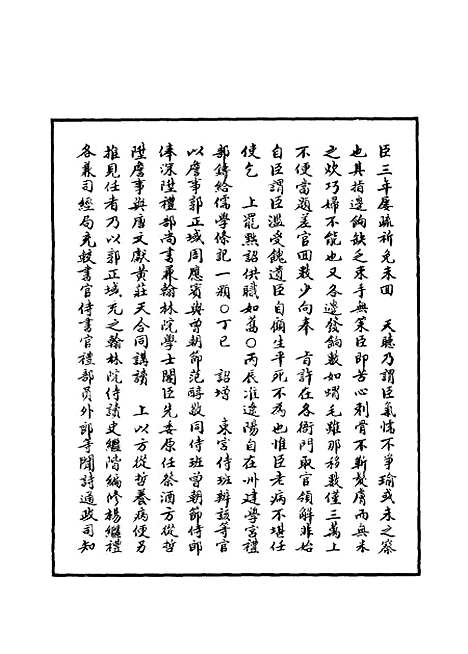 臣三年屢疏祈免未回　天聽乃謂臣氣懦不爭瑜或未之察
也具指邊餉缺乏束手無策臣即苦心剃骨不斬髮膚而無米
之炊巧婦不能也又各邊發餉數如蝟毛難那移數僅三萬上
不便當題差官面數少向奉　旨許在各衙門取官領解非始
自臣謂臣濫受餽遺臣自矢生平死不為也惟臣老病不堪任
使乞　上罷黜詔供職如舊〇丙辰准遼陽自在州建學宮禮
部鑄給儒學條記一顆〇丁巳　詔增　東宮侍班辦該等官
以詹事郭正域周應賓與曾朝節范醇敬同侍班曾朝節侍郎
俸深陞禮部尚書兼翰林院學士閣臣先委原任祭酒方從哲
陞詹事與唐文獻黃莊天合同講讀　上以方從哲養病便另
推見任者乃以郭正域充之翰林院侍讀史繼階編修楊繼禮
各兼司經局充較書官侍書官禮部員外郎等聞詩通政司知